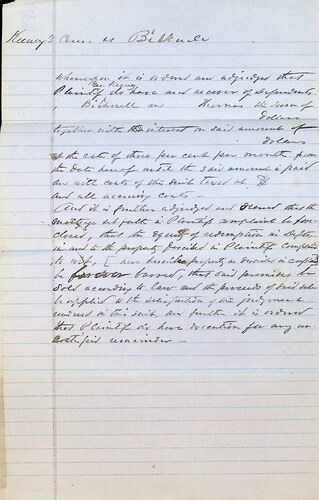 Keeney's Com. vs Bicknell
Whereupon it is ordered and adjudged that
Plaintiff do have and recover of Defendants
Bicknell and Thomas the sum of
Dollars
together with interest on said amount of
Dollars
at the rate of three per cent per month from
the date hereof until the said amount is paid
and with costs of this suit taxed at $
and all accruing costs
And it is further adjudged and decreed that the
mortgage set forth in Plaintiff complaint be fore
closed, that the equity of redemption in Defts
in and to the property described in Plaintiff Complaint
to wit, [here describe property as described in complaint]
be forever barred, that said premises be
sold according to law and the proceeds of said sale
be applied to the satisfaction of the judgment
rendered in this suit, and further it is ordered
that Plaintiff do have execution for any un
satisfied remainder —